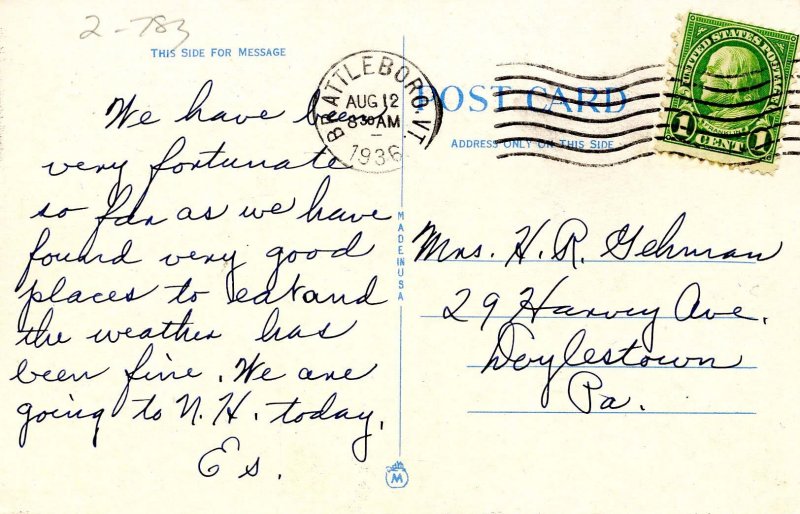 2-783
THIS SIDE FOR MESSAGE
We have been
very fortunate
so far as we have
found very good
places to eat and
the weather has
been fine. We are
going to N.H. today.
Es.
MADE IN USA
M
BRATTLEBORO, VT.
AUG 12
8 30 AM
1936
POST CARD
ADDRESS ONLY ON THIS SIDE
UNITED STATES POSTAGE
FRANKLIN
1 CENT 1
Mrs. H. R. Gehman
29 Harvey Ave.
Doylestown
Pa.